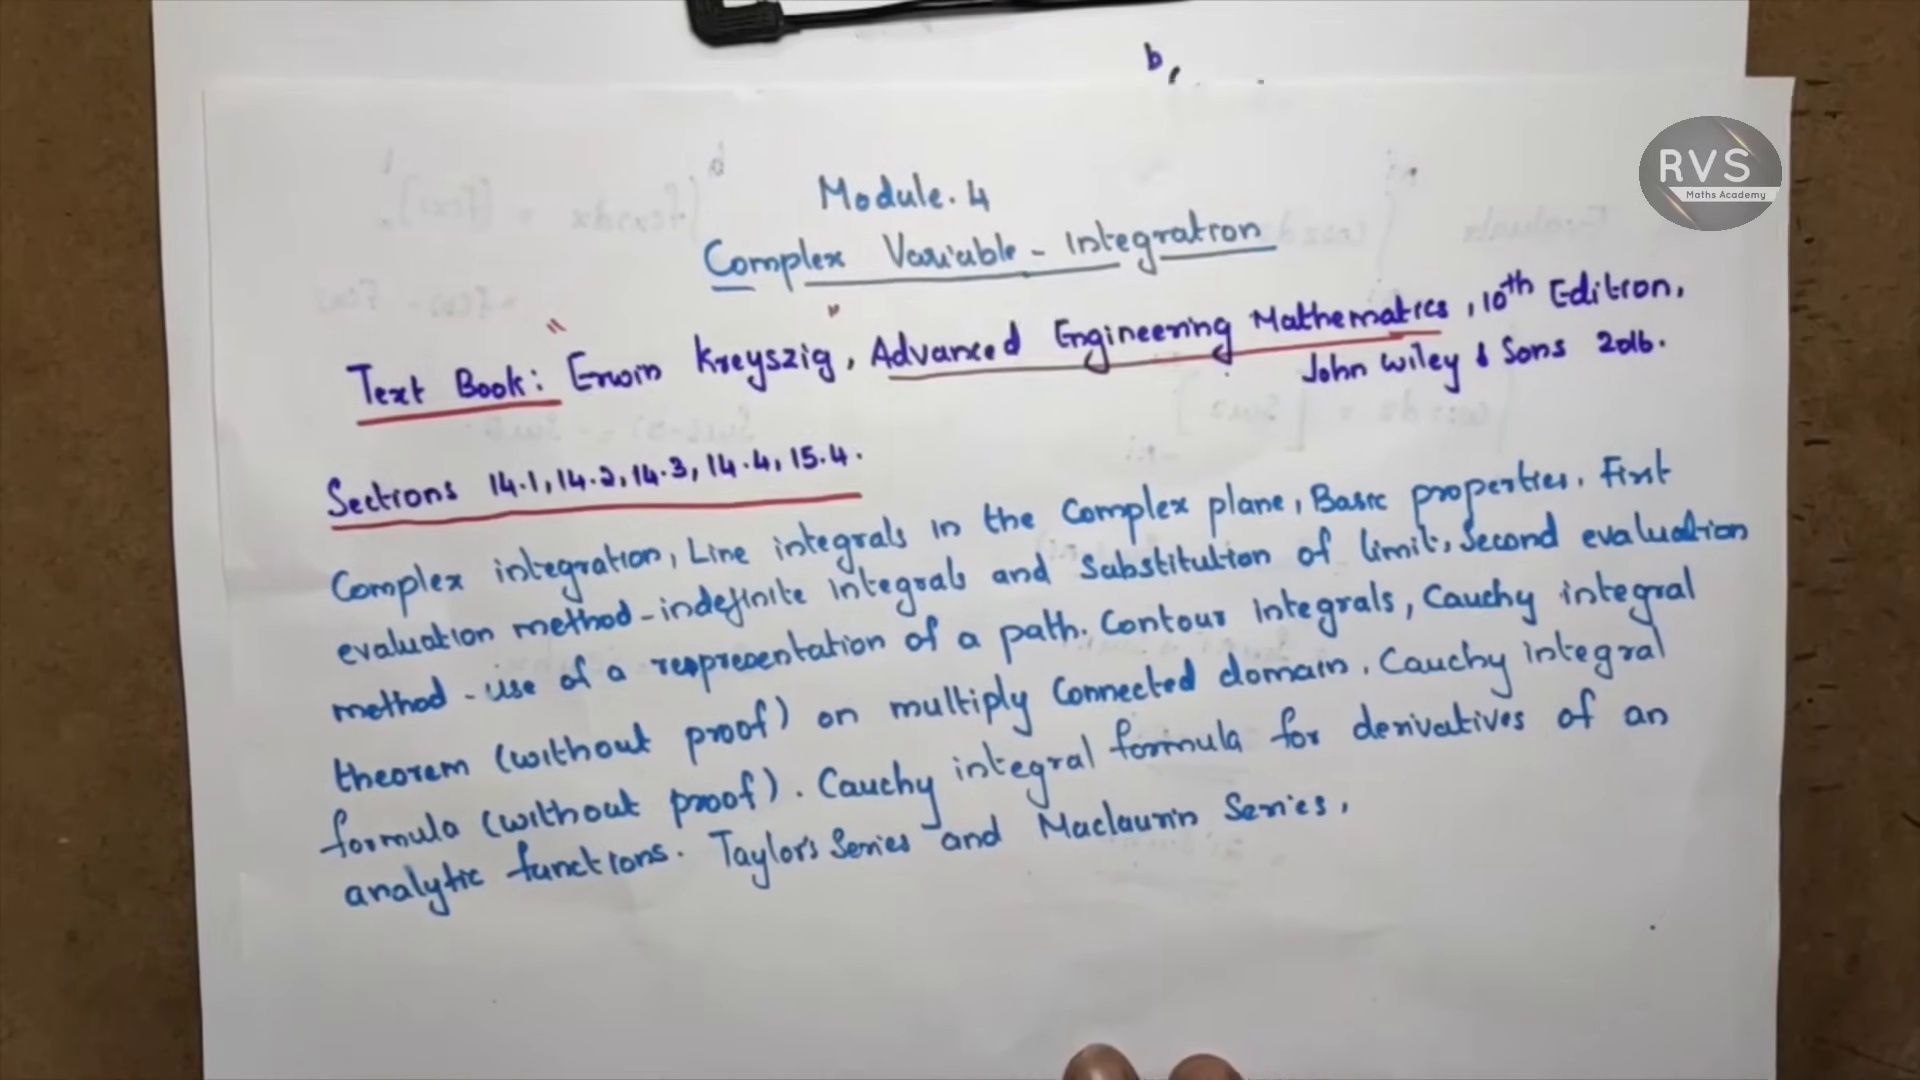 b,
RVS
Maths Academy
Module. 4
Complex Variable - Integration
Text Book: Erwin Kreyszig, Advanced Engineering Mathematics, 10th Edition,
John Wiley & Sons 2016.
Sections 14.1, 14.2, 14.3, 14.4, 15.4.
Complex integration, Line integrals in the Complex plane, Basic properties. First
evaluation method - indefinite integrals and Substitution of limit, Second evaluation
method - use of a representation of a path. Contour integrals, Cauchy integral
theorem (without proof) on multiply Connected domain. Cauchy integral
formula (without proof). Cauchy integral formula for derivatives of an
analytic functions. Taylor's Series and Maclaurin Series.